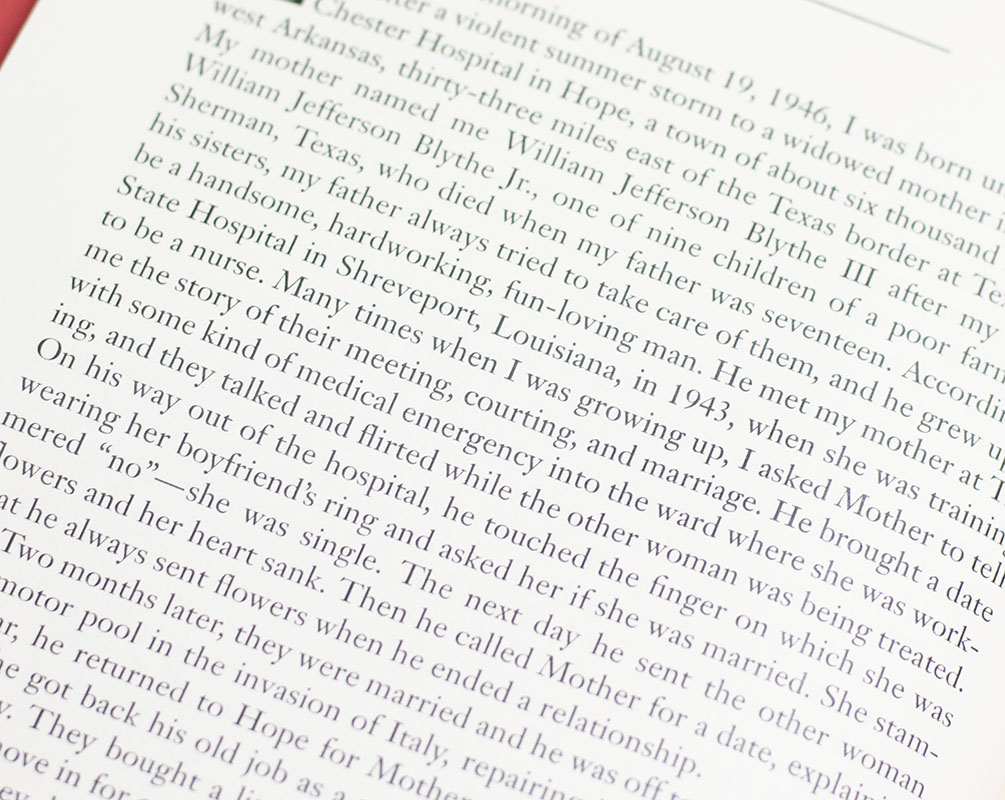 morning of August 19, 1946, I was born
after a violent summer storm to a widowed mother
Chester Hospital in Hope, a town of about six thousand
west Arkansas, thirty-three miles east of the Texas border at
My mother named me William Jefferson Blythe III after my
William Jefferson Blythe Jr., one of nine children of a poor
Sherman, Texas, who died when my father was seventeen.
his sisters, my father always tried to take care of them, and he grew
be a handsome, hardworking, fun-loving man. He met my mother at
State Hospital in Shreveport, Louisiana, in 1943, when she was
to be a nurse. Many times when I was growing up, I asked Mother to tell
me the story of their meeting, courting, and marriage. He brought a date
with some kind of medical emergency into the ward where she was work-
ing, and they talked and flirted while the other woman was being treated.
On his way out of the hospital, he touched the finger on which she was
wearing her boyfriend's ring and asked her if she was married. She stam-
mered “no”—she was single. The next day he sent the other woman
lowers and her heart sank. Then he called Mother for a date,
at he always sent flowers when he ended a relationship.
Two months later, they were married and he was off
motor pool in the invasion of Italy, repairing
he returned to Hope for
he got back his old job as a
They bought a
move in for